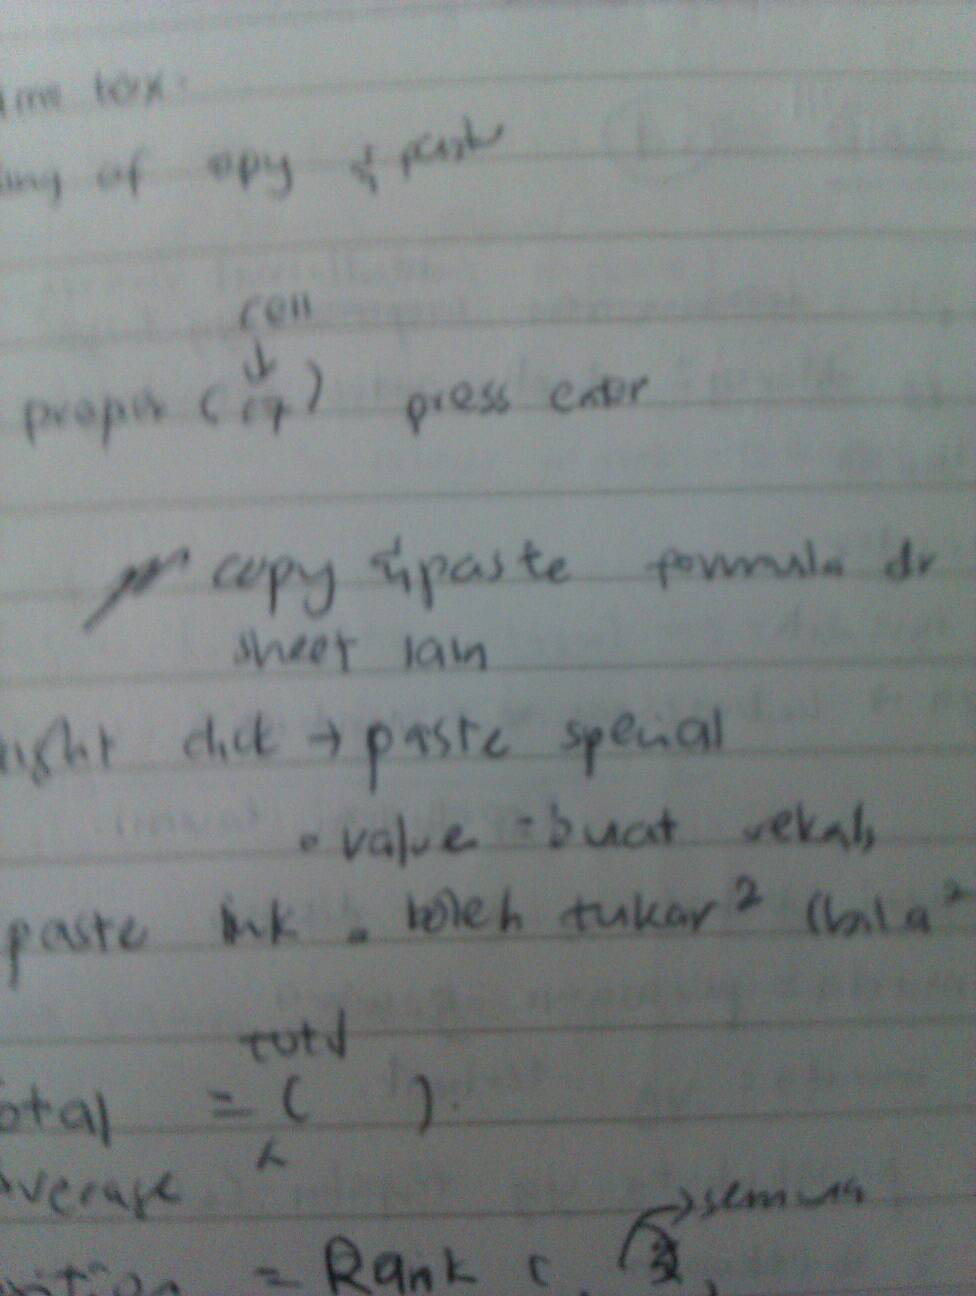 box:
of copy & paste
cell
↓
proper (c7) press enter
copy & paste formula dr
sheet lain
right click → paste special
• value = buat
paste link • boleh tukar² (bila²
total
total = ( )
average
→ semua
= Rank (